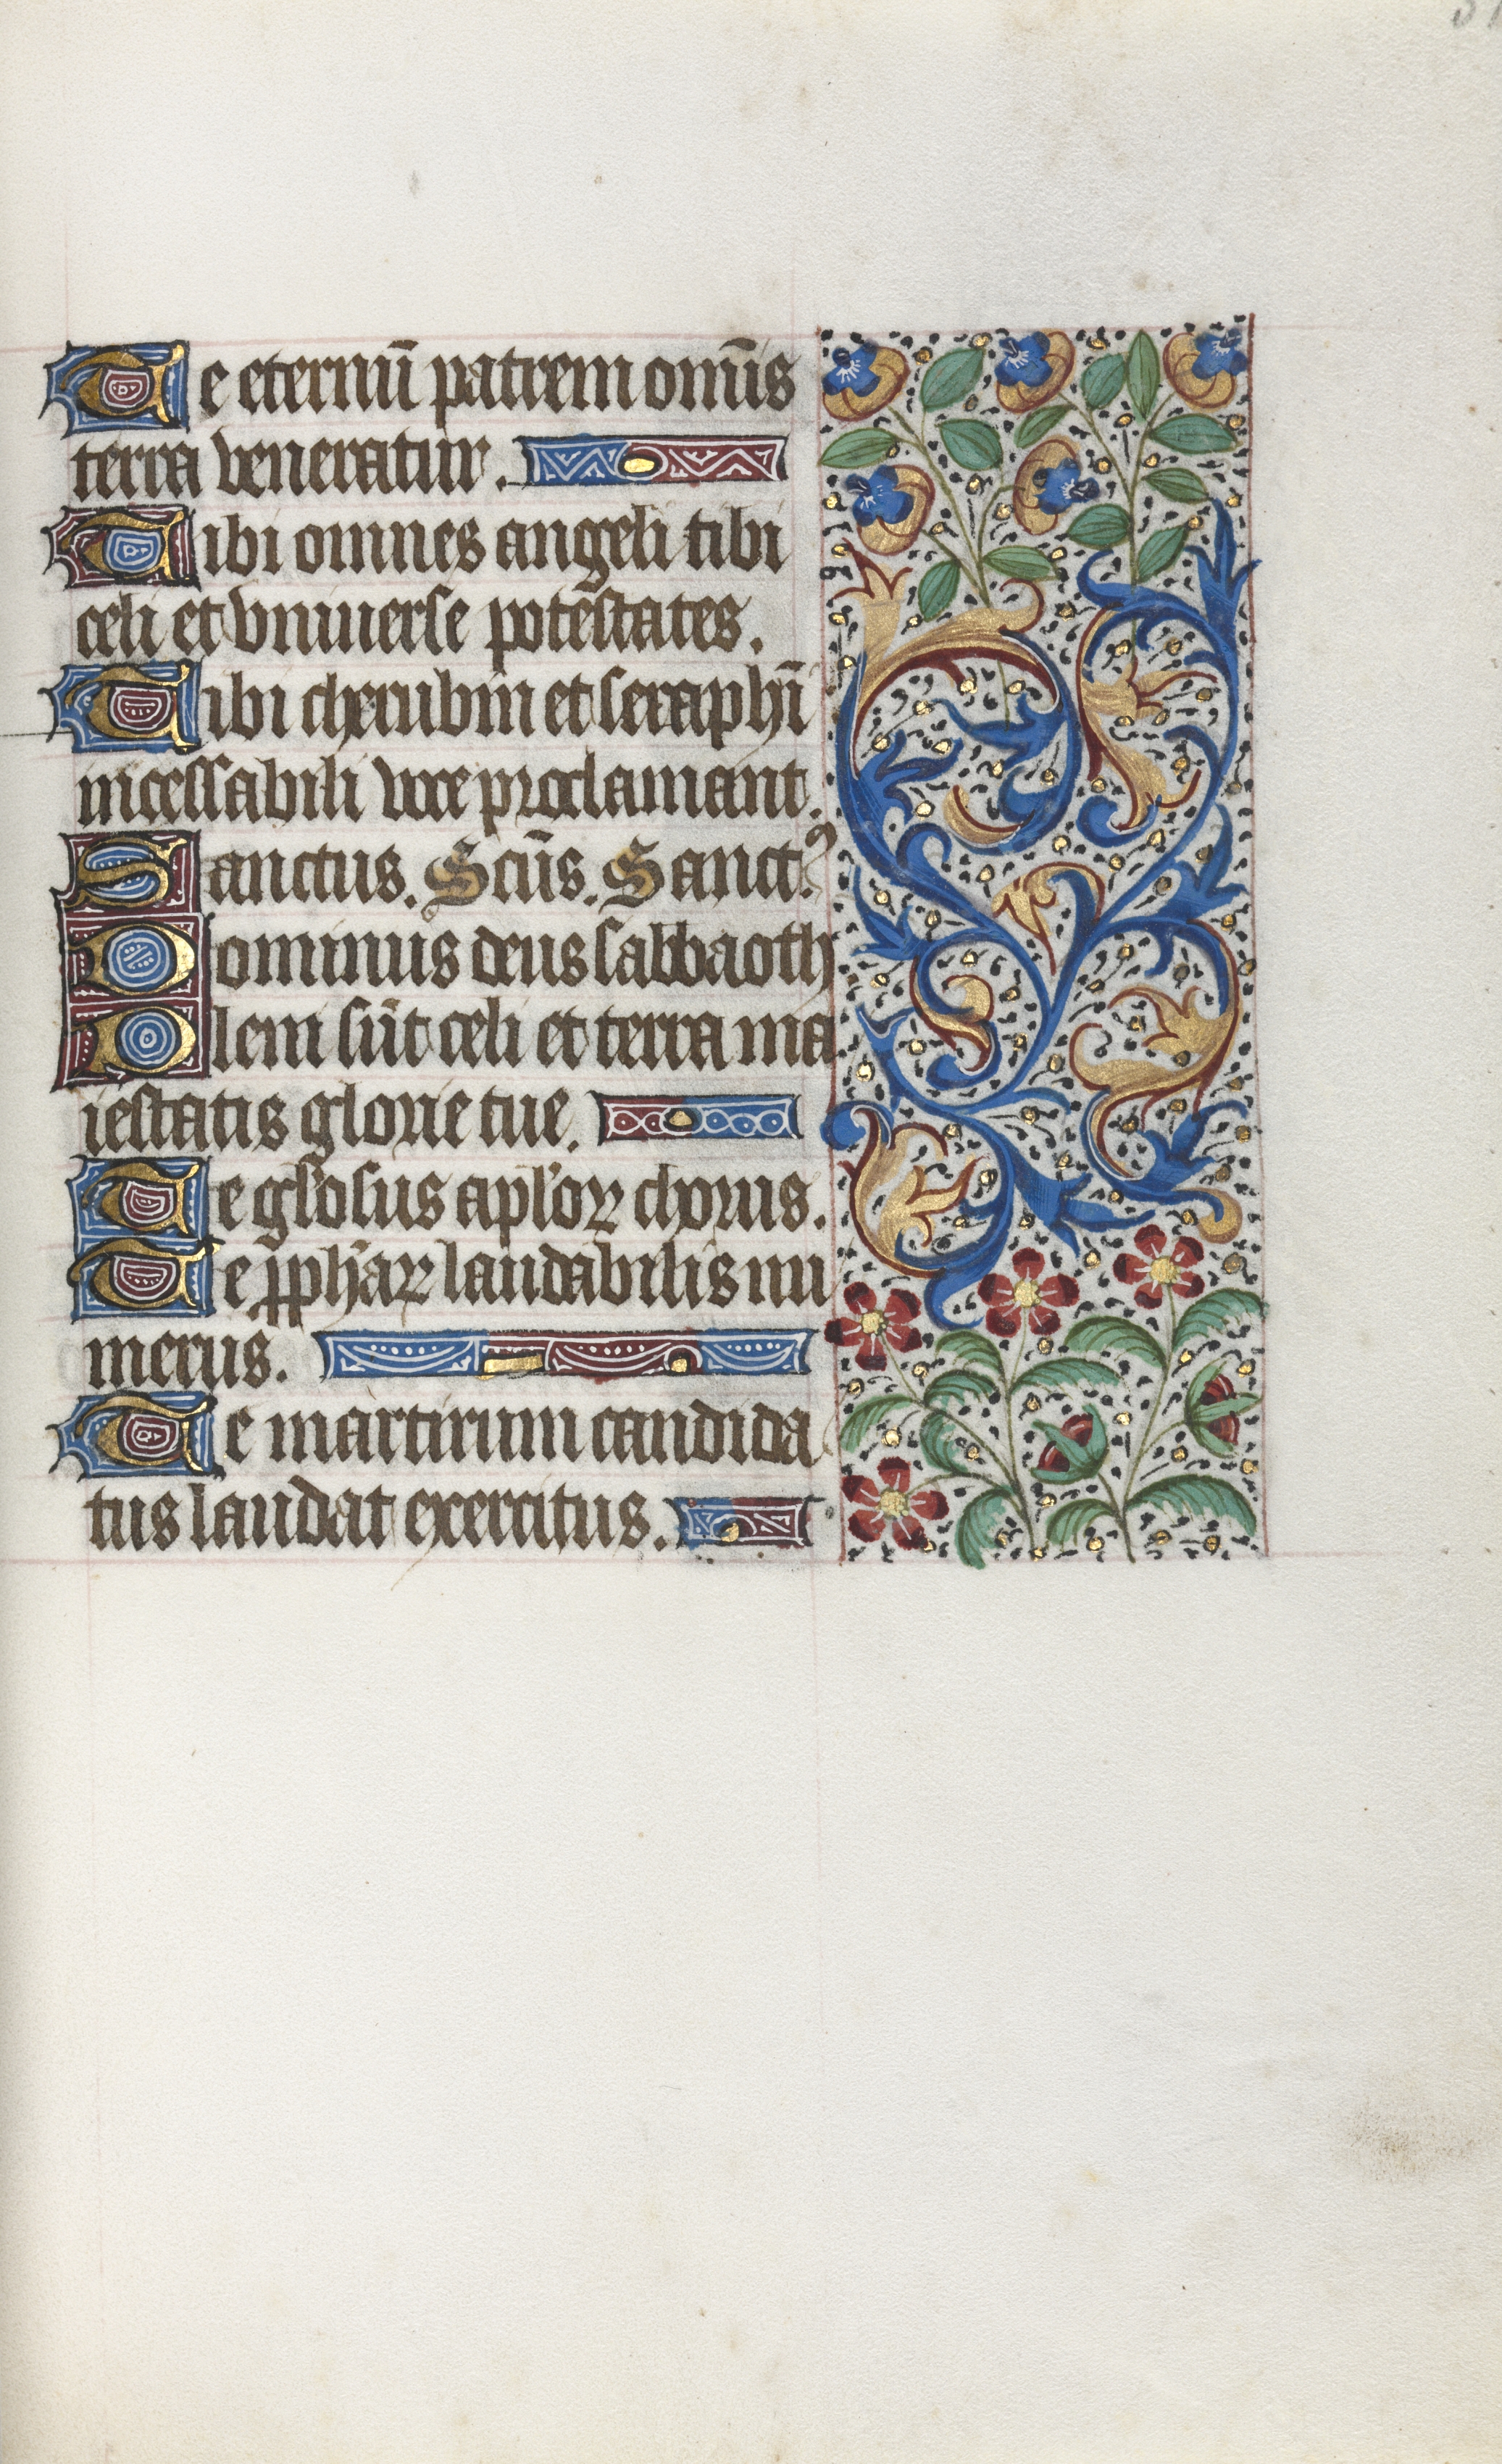 Te eternū patrem om̄is
terra veneratur.
Tibi omnes angeli tibi
celi et vniuerse potestates.
Tibi cherubin et seraphī
incessabili voce proclamant.
Sanctus. Scūs. Sanctꝰ
Dominus deus sabbaoth
Pleni sūt celi et terra ma
iestatis glorie tue.
Te gl'osus apl'oꝝ chorus.
Te ꝓphaꝝ laudabilis nu
merus.
Te martirum candida
tus laudat exercitus.